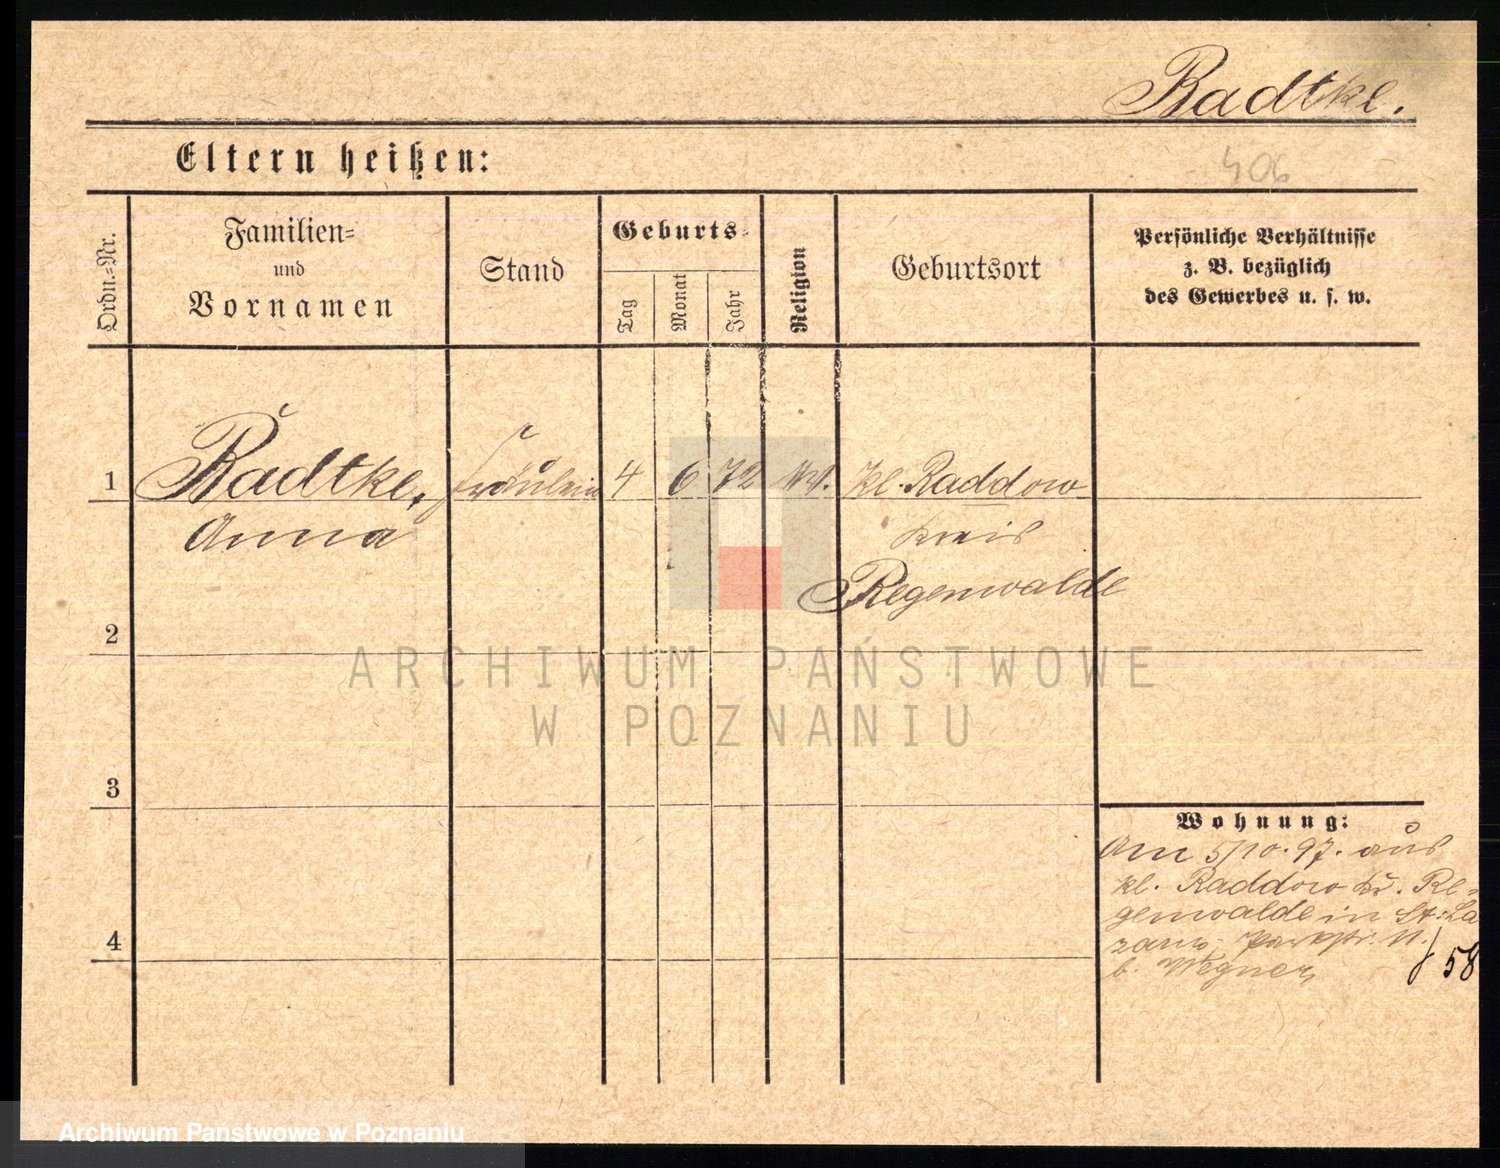 Radtke.
Eltern heißen:
406
Ordn.=Nr.
Familien=
und
Vornamen
Stand
Geburts=
Tag
Monat
Jahr
Religion
Geburtsort
Persönliche Verhältnisse
z. B. bezüglich
des Gewerbes u. s. w.
1
Radtke,
Anna
Fräulein
4
6
72
Kl. Raddow
Kreis
Regenwalde
2
ARCHIWUM PAŃSTWOWE
W POZNANIU
3
Wohnung:
Am 5/10.97. aus
Kl. Raddow Kr. Re=
genwalde in St: La
zarus, Parkstr. 11.
b. Wegner,
58
4
Archiwum Państwowe w Poznaniu